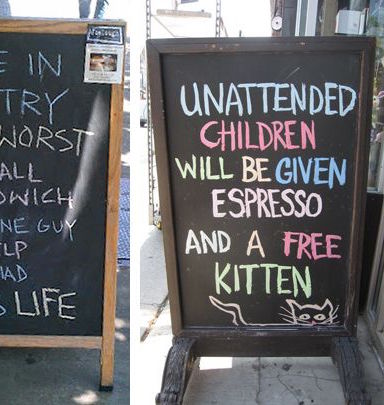 IN
TRY
WORST
ALL
NE GUY
LIFE
UNATTENDED
CHILDREN
WILL BE GIVEN
ESPRESSO
AND A FREE
KITTEN